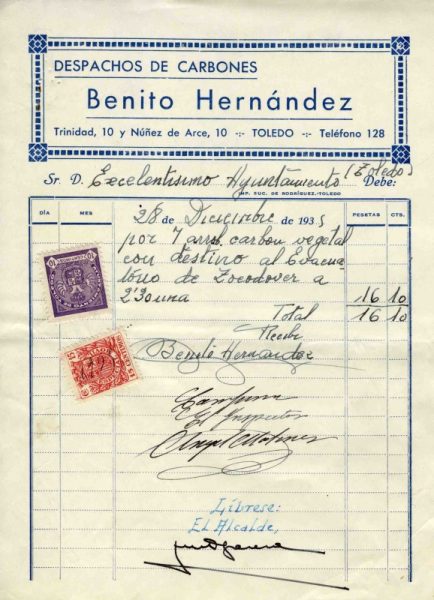 DESPACHOS DE CARBONES
Benito Hernández
Trinidad, 10 y Núñez de Arce, 10 -:- TOLEDO -:- Teléfono 128
IMP. SUC. DE RODRÍGUEZ.-TOLEDO
Sr. D. Excelentisimo Ayuntamiento (Toledo) Debe:
DÍA MES PESETAS CTS.
28 de Diciembre de 1935
por 7 arrb. carbon vegetal
con destino al Evacua
torio de Zocodover a
2'30 una 16 10
Total 16 10
Recibi
Benito Hernandez
Conforme
El Inspector
Librese:
El Alcalde,